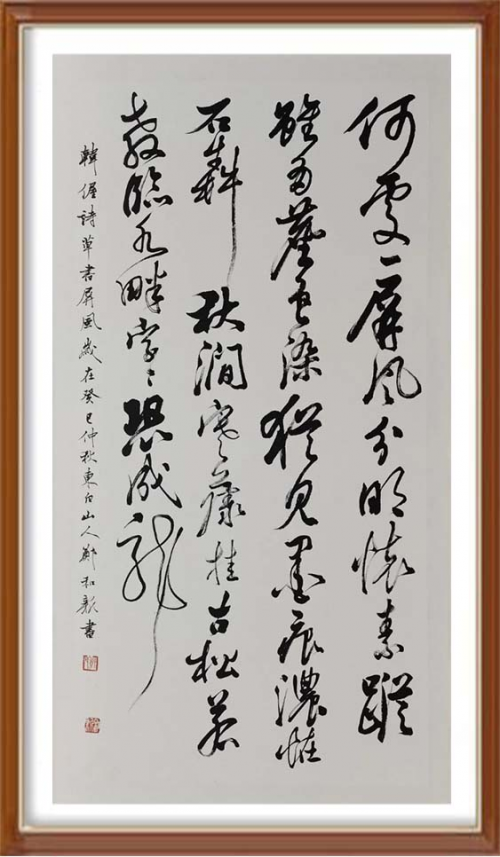 何處一屏风分明懷素蹤
雖多塵色染猶見墨痕濃怪
石犇秋澗寒藤挂古松若
教臨水畔字〻恐成龍
韓偓詩草書屏風歲在癸巳仲秋東白山人鄭和書